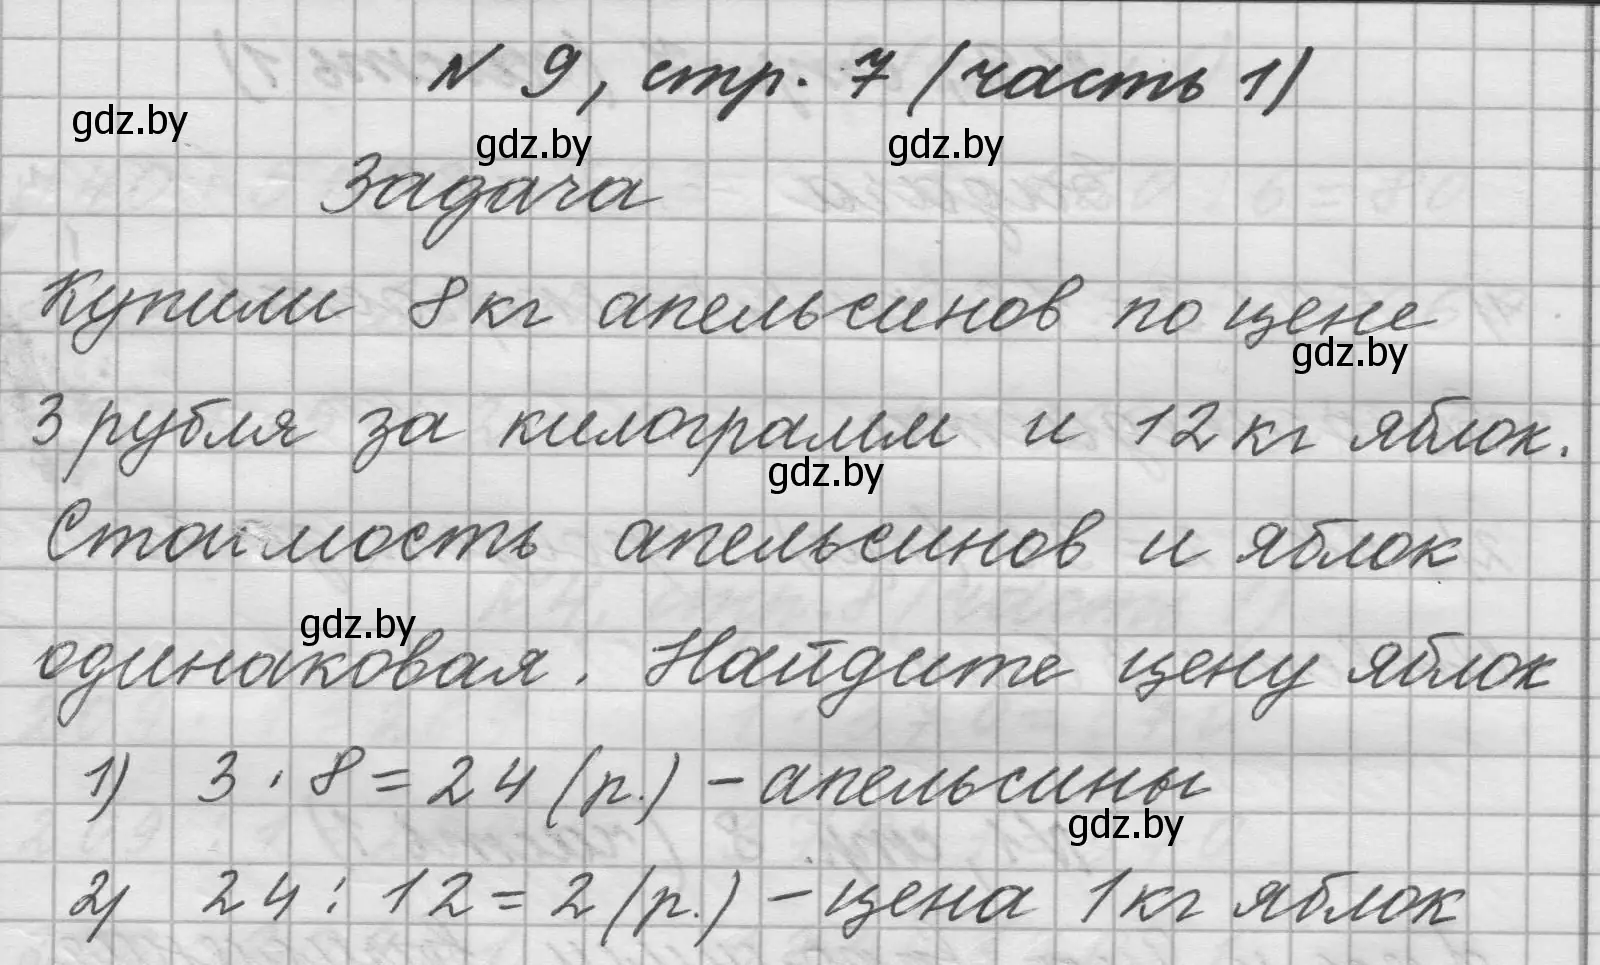 № 9, стр. 7 (часть 1)
gdz.by
gdz.by gdz.by
Задача
Купили 8 кг апельсинов по цене
gdz.by
3 рубля за килограмм и 12 кг яблок.
gdz.by
Стоимость апельсинов и яблок
gdz.by
одинаковая. Найдите цену яблок
1) 3 · 8 = 24 (р.) – апельсины
gdz.by
2) 24 : 12 = 2 (р.) – цена 1 кг яблок